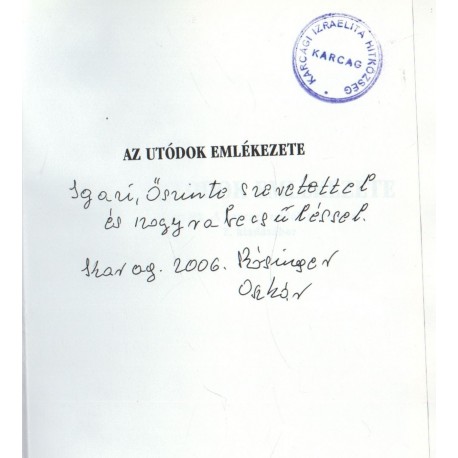 KARCAGI IZRAELITA HITKÖZSÉG
KARCAG
AZ UTÓDOK EMLÉKEZETE
Igazi, Őszinte szeretettel
és nagyrabecsüléssel.
Karcag. 2006. Rósinger
Oszkár